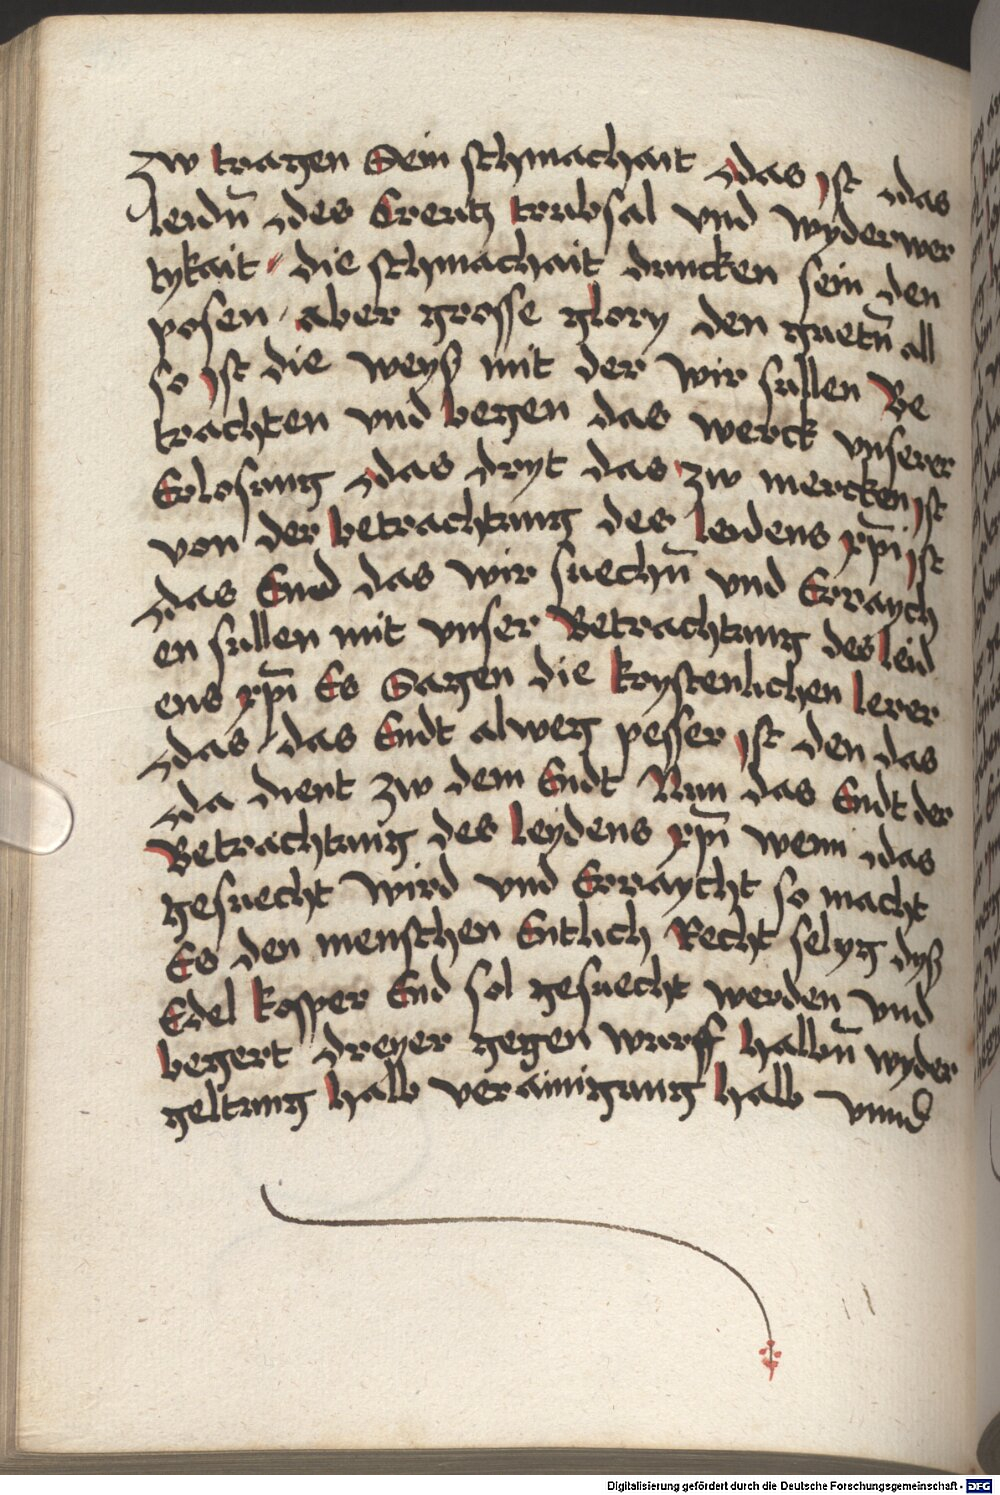 zw tragen Sein schmachait das ist das
leidn̄ des Creutz trubsal vnd wyderwer
tykait / die schmachait duncken sein den
posen / aber grosse glory den guetn̄ all
so ist die weyß mit der wir sullen Be
trachten vnd begen das werck vnserer
Erlosung das dryt das zw mercken ist
von der betrachtung des leidens xp̄i ist
das End das wir suechn̄ vnd Erraych
en sullen mit vnser Betrachtung des leid
ens xp̄i Es Sagen die krystenlichen lerer
das / das Endt alweg pesser ist den das
da dient zw dem Endt Nun das Endt der
Betrachtung des leydens xp̄i wenn das
gesuecht wird vnd Erraycht so macht
Es den menschen Entlich Recht selyg dyß
Edel kosper End sol gesuecht werden vnd
begert dreyer gegen wurff halbn̄ wyder
geltung halb verainigung halb vnnd
Digitalisierung gefördert durch die Deutsche Forschungsgemeinschaft - DFG